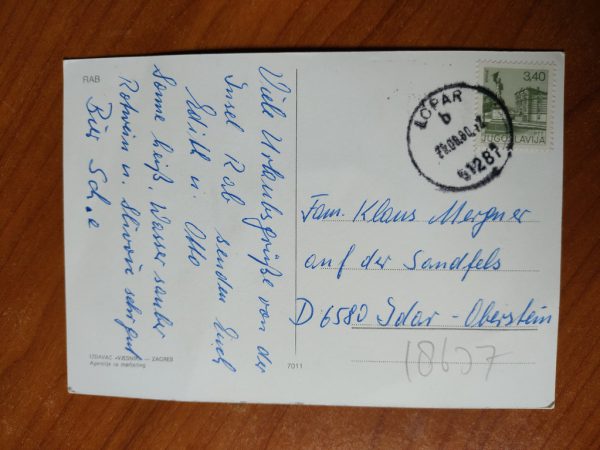 RAB
Viele Urlaubsgrüße von der
Insel Rab senden Euch
Edith u. Otto
Sonne heiß, Wasser sauber
Rotwein u. Sliwovi sehr gut
Bier
IZDAVAČ »VJESNIK« — ZAGREB
Agencija za marketing
7011
3,40
JUGOSLAVIJA
LOPAR
b
51281
Fam. Klaus Mergner
auf der Sandfels
D 6580 Idar-Oberstein
18637